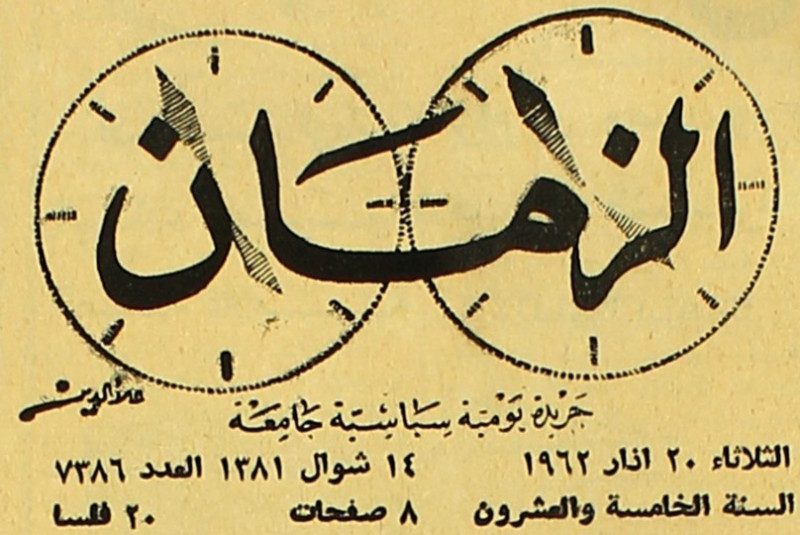 الزمان
علاء الدين
جريدة يومية سياسية جامعة
الثلاثاء ٢٠ اذار ١٩٦٢ ١٤ شوال ١٣٨١ العدد ٧٣٨٦
السنة الخامسة والعشرون ٨ صفحات ٢٠ فلسا